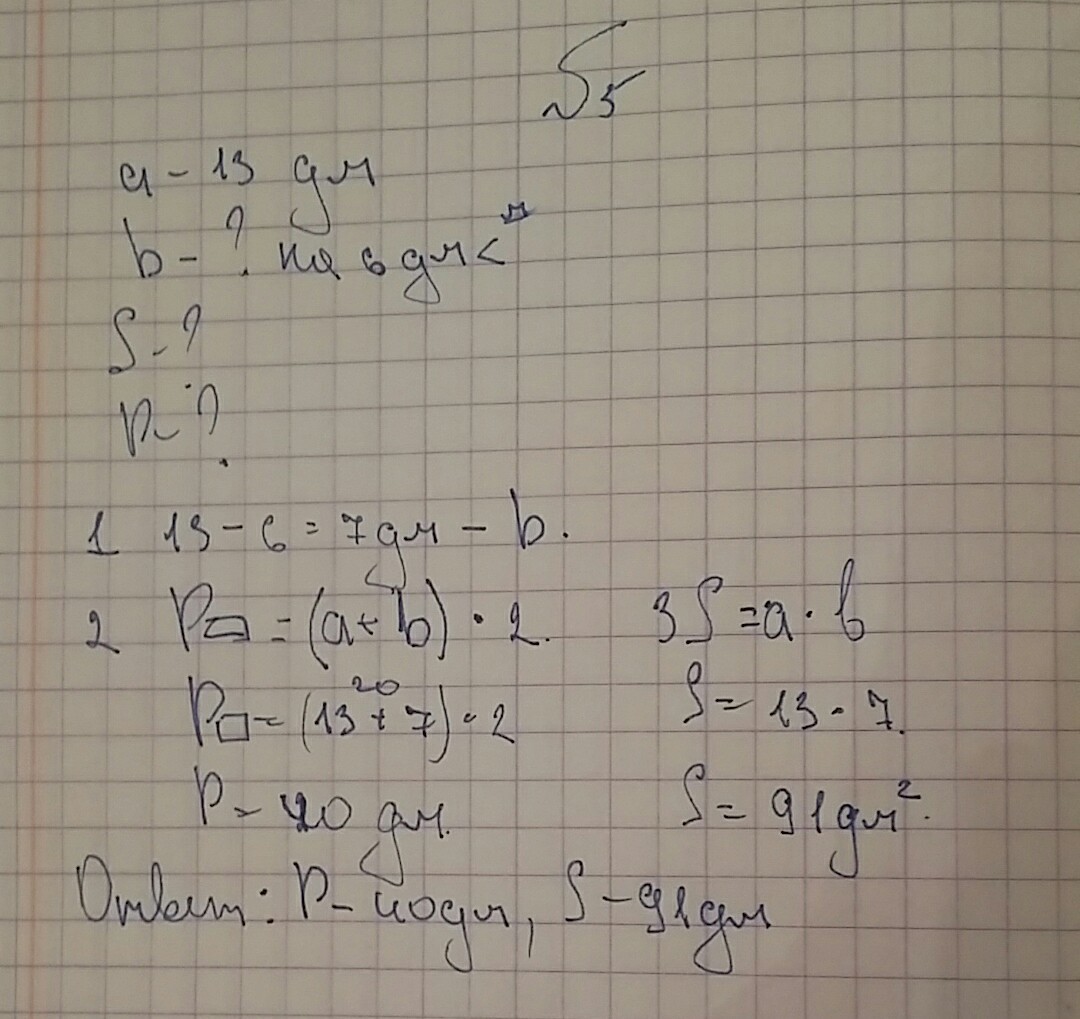 №5
a - 13 дм
b - ? на 6 дм <
S - ?
P - ?
1 13 - 6 = 7 дм - b.
2 P▭ = (a + b) · 2.
20
P▭ = (13 + 7) · 2
P = 40 дм.
3 S = a · b
S = 13 · 7.
S = 91 дм².
Ответ: P - 40 дм, S - 91 дм